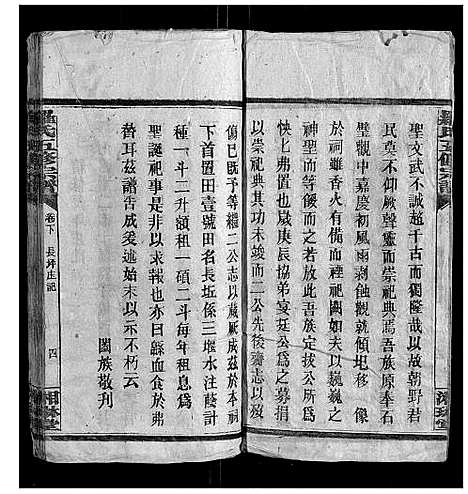 聖文武不誠超千古而獨隆哉以故朝野君
民莫不仰厥聲靈而崇祀典焉吾族原奉石
壁觀中嘉慶初風雨剥蝕觀就傾圮移像
於祠雖香火有備而禋祀闕如夫以巍巍之
神聖而等諸若敖可乎哉於是吾族定拔公所爲
怏上弗置也歲庚辰協弟宴廷公爲之募捐
以崇祀典其功未竣而二公先後齎志以歿
傷已既予等繼二公志以蕆厥成茲於本祠
下首置田壹號田名長坵係三堰水注蔭計
種一斗二升額租一碩二斗每年租息爲
聖誕祀事是非以求報也亦曰緜血食於弗
替耳茲譜告成爰述始末以示不朽云
闔族敬刋
羅氏五修宗譜
卷下
長坪庄記
四